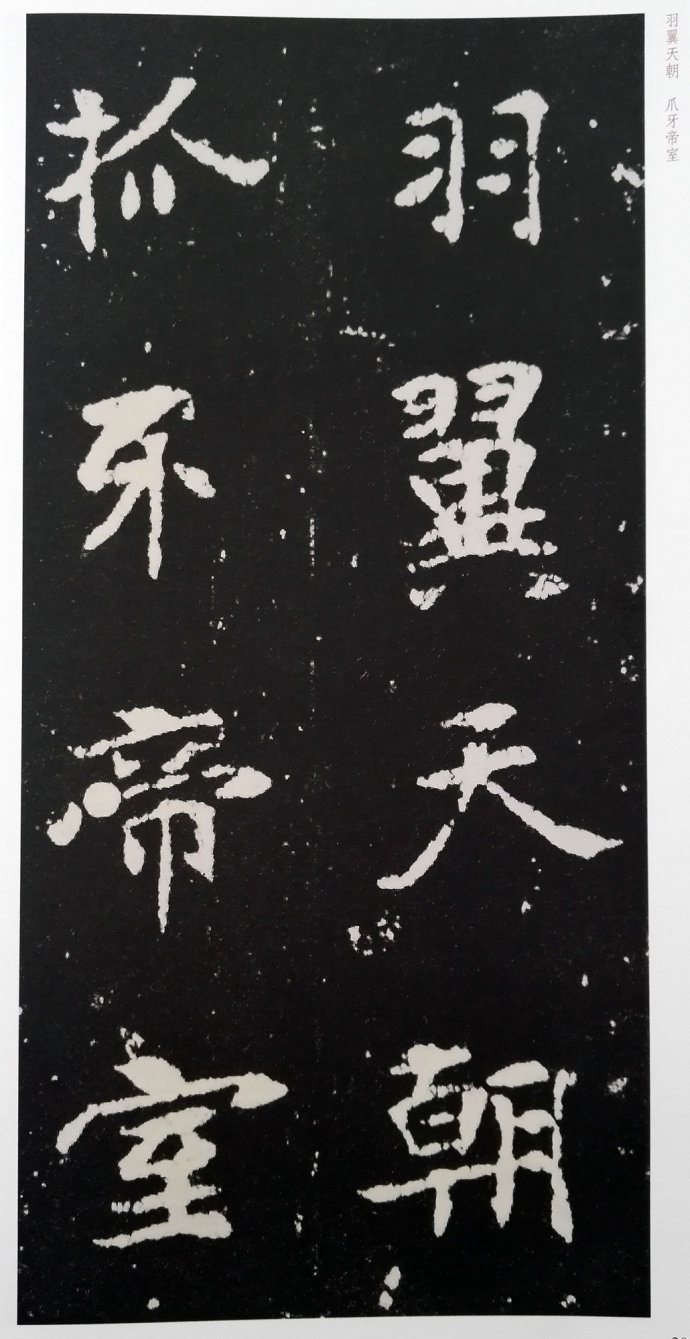 羽翼天朝 爪牙帝室
羽翼天朝
抓牙帝室